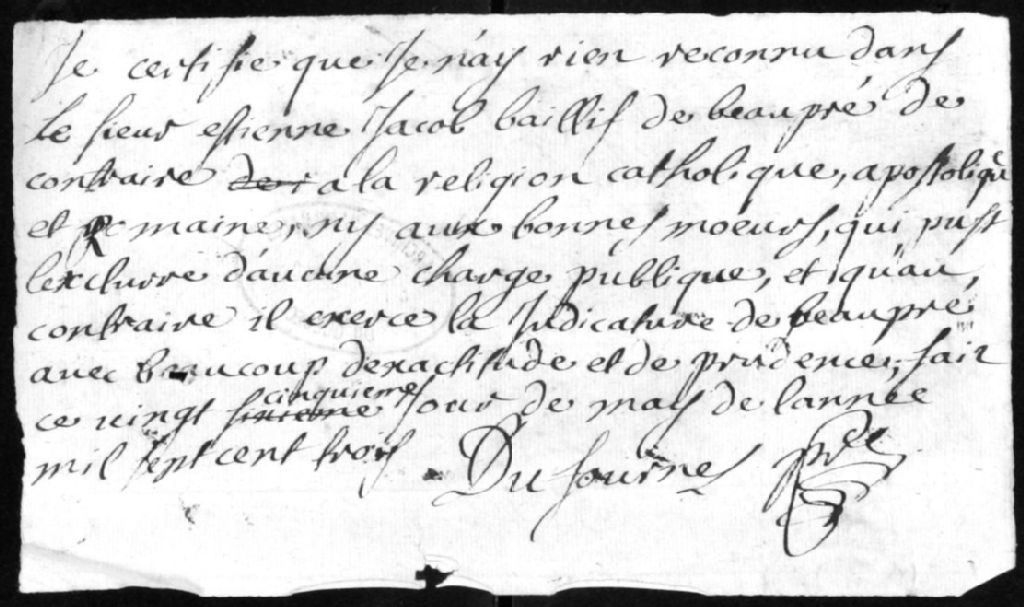 Je certifie que Je n'ay rien reconnu dans
le sieur estienne Jacob baillif de beaupré de
contraire a la religion catholique, apostolique
et Romaine, ny aux bonnes moeurs, qui pust
lexclurre d'aucune charge publique, et qu'au
contraire il exerce la Judicature de beaupré
avec beaucoup dexactitude et de prudence, fait
ce vingt cinquieme Jour de may de lannee
mil sept cent trois. Dufournel ptre